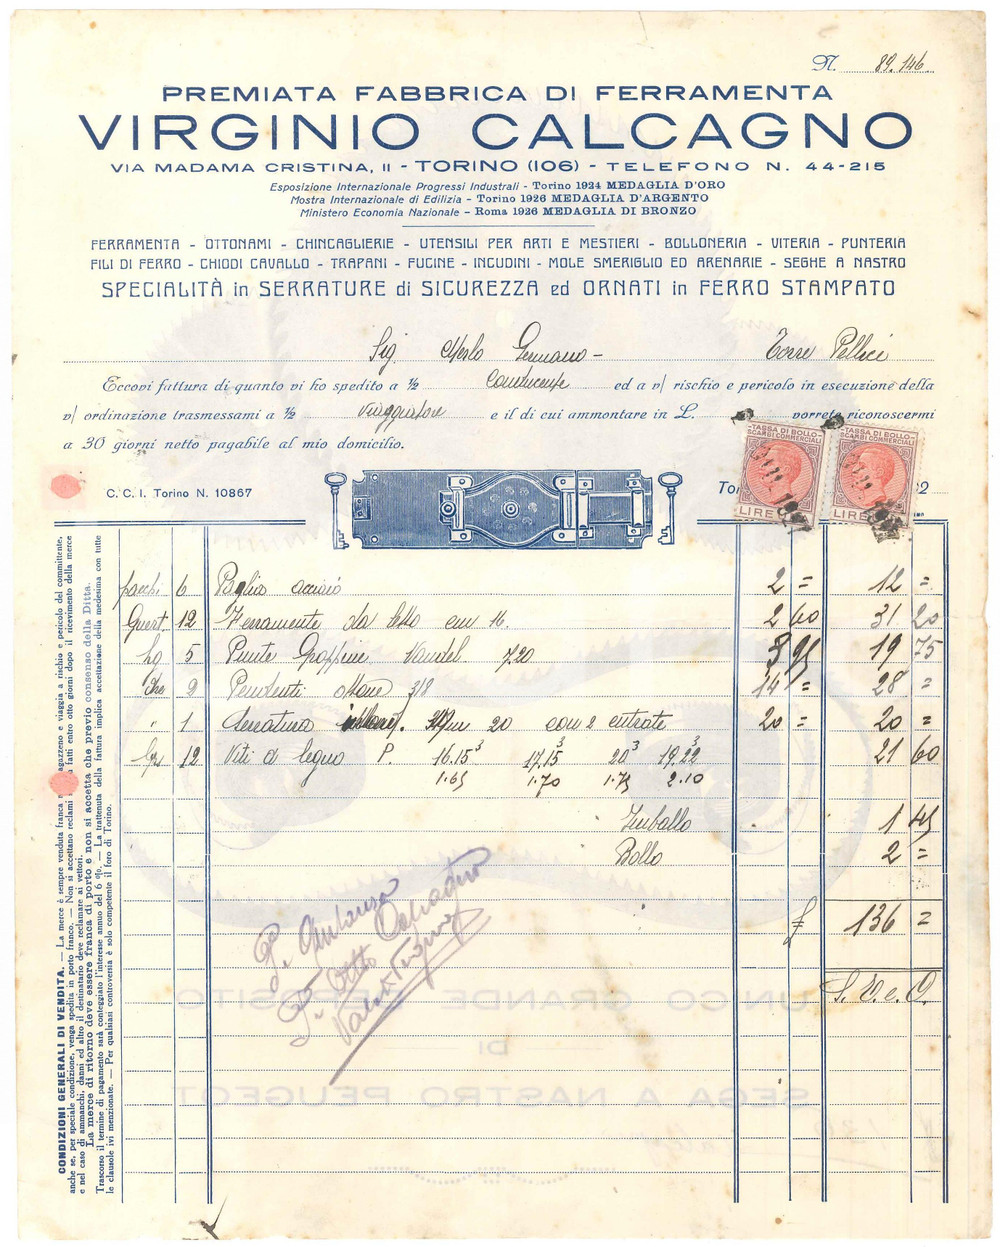 N. 89.146
PREMIATA FABBRICA DI FERRAMENTA
VIRGINIO CALCAGNO
VIA MADAMA CRISTINA, 11 - TORINO (106) - TELEFONO N. 44-215
Esposizione Internazionale Progressi Industrali - Torino 1924 MEDAGLIA D'ORO
Mostra Internazionale di Edilizia - Torino 1926 MEDAGLIA D'ARGENTO
Ministero Economia Nazionale - Roma 1926 MEDAGLIA DI BRONZO
FERRAMENTA - OTTONAMI - CHINCAGLIERIE - UTENSILI PER ARTI E MESTIERI - BOLLONERIA - VITERIA - PUNTERIA
FILI DI FERRO - CHIODI CAVALLO - TRAPANI - FUCINE - INCUDINI - MOLE SMERIGLIO ED ARENARIE - SEGHE A NASTRO
SPECIALITÀ in SERRATURE di SICUREZZA ed ORNATI in FERRO STAMPATO
Sig. Merlo Germano - Torre Pellice
Eccovi fattura di quanto vi ho spedito a ½ Conducente ed a v/ rischio e pericolo in esecuzione della
v/ ordinazione trasmessami a ½ viaggiatore e il di cui ammontare in L. vorrete riconoscermi
a 30 giorni netto pagabile al mio domicilio.
TASSA DI BOLLO SCAMBI COMMERCIALI LIRE
TASSA DI BOLLO SCAMBI COMMERCIALI LIRE
C. C. I. Torino N. 10867
pacchi 6 Paglia acciaio 2 = 12 =
Guert 12 Ferramente da letto cm 16. 2 60 31 20
hg 5 Punte Graffine Vandel. 7.20 3 95 19 75
2 Pendenti ottone 318 14 = 28 =
" 1 Serratura 20 con 2 entrate 20 = 20 =
12 Viti a legno P. 16.15³ 17.15³ 20³ 19.22³ 21 60
1.65 1.70 1.75 2.10
Imballo 1 45
Bollo 2 =
£ 136 =
S. V. e O.
P. Otto Calcagno
CONDIZIONI GENERALI DI VENDITA. — La merce è sempre venduta franca agazzeno e viaggia a rischio e pericolo del committente,
anche se, per speciale condizione, venga spedita in porto franco. — Non si accettano reclami fatti entro otto giorni dopo il ricevimento della merce
e nel caso di ammanchi, danni ed altro il destinatario deve reclamare ai vettori.
La merce di ritorno deve essere franca di porto e non si accetta che previo consenso della Ditta.
Trascorso il termine di pagamento sarà conteggiato l'interesse annuo del 6 %. — La trattenuta della fattura implica accettazione della medesima con tutte
le clausole ivi menzionate. — Per qualsiasi controversia è solo competente il foro di Torino.
UNICO GRANDE DEPOSITO
DI
SEGA A NASTRO PEUGEOT